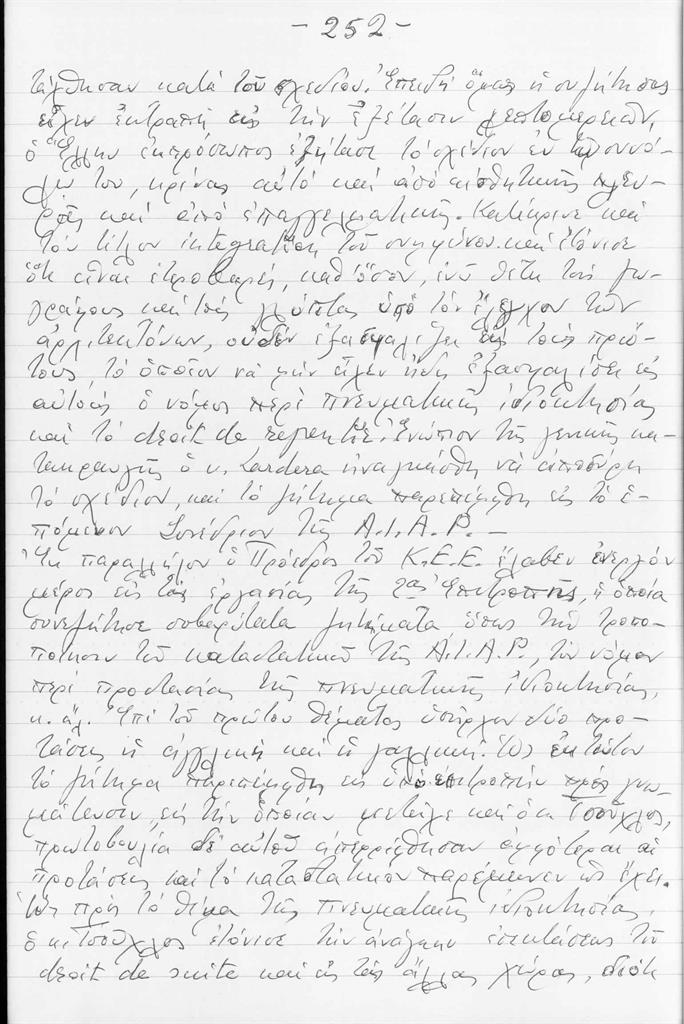 - 252 -
τάχθησαν κατά τοῦ σχεδίου. Ἐπειδή ὅμως ἡ συζήτησις
εἶχεν ἐκτραπῆ εἰς τήν ἐξέτασιν λεπτομερειῶν,
ὁ Ἕλλην ἐκπρόσωπος ἐξήτασε τό σχέδιον ἐν τῷ συνό-
λῳ του, κρίνας αὐτό καί ἀπό αἰσθητικῆς πλευ-
ρᾶς καί ἀπό ἐπαγγελματικῆς. Κατέκρινε καί
τόν τίτλον integration τοῦ συμφώνου καί ἐτόνισε
ὅτι εἶναι ἑτεροβαρές, καθ' ὅσον, ἐνῶ θέτει τούς ζω-
γράφους καί τούς γλύπτας ὑπό τόν ἔλεγχον τῶν
ἀρχιτεκτόνων, οὐδέν ἐξασφαλίζει εἰς τούς πρώ-
τους, τό ὁποῖον νά μήν εἶχεν ἤδη ἐξασφαλίσει εἰς
αὐτούς ὁ νόμος περί πνευματικῆς ἰδιοκτησίας
καί τό droit de repentir. Ἐνώπιον τῆς γενικῆς κα-
τακραυγῆς ὁ κ. Lardera ἠναγκάσθη νά ἀποσύρῃ
τό σχέδιον, καί τό ζήτημα παρεπέμφθη εἰς τό ἑ-
πόμενον Συνέδριον τῆς A.I.A.P. —
Ἐκ παραλλήλου ὁ Πρόεδρος τοῦ Κ.Ε.Ε. ἔλαβεν ἐνεργόν
μέρος εἰς τάς ἐργασίας τῆς 2ας Ἐπιτροπῆς, ἡ ὁποία
συνεζήτησε σοβαρώτατα ζητήματα ὅπως τήν τροπο-
ποίησιν τοῦ καταστατικοῦ τῆς A.I.A.P., τόν νόμον
περί προστασίας τῆς πνευματικῆς ἰδιοκτησίας,
κ. ἄλ. Ἐπί τοῦ πρώτου θέματος ὑπῆρχον δύο προ-
τάσεις ἡ ἀγγλική καί ἡ γαλλική. Ὡς ἐκ τούτου
τό ζήτημα παρεπέμφθη εἰς ὑποεπιτροπήν πρός γνω-
μάτευσιν, εἰς τήν ὁποίαν μετεῖχε καί ὁ κ. Τσοῦχλος,
πρωτοβουλίᾳ δέ αὐτοῦ ἀπερρίφθησαν ἀμφότεραι αἱ
προτάσεις καί τό καταστατικόν παρέμεινεν ὡς ἔχει.
Ὡς πρός τό θέμα τῆς πνευματικῆς ἰδιοκτησίας,
ὁ κ. Τσοῦχλος ἐτόνισε τήν ἀνάγκην ἐπεκτάσεως τοῦ
droit de suite καί εἰς τάς ἄλλας χώρας, διότι